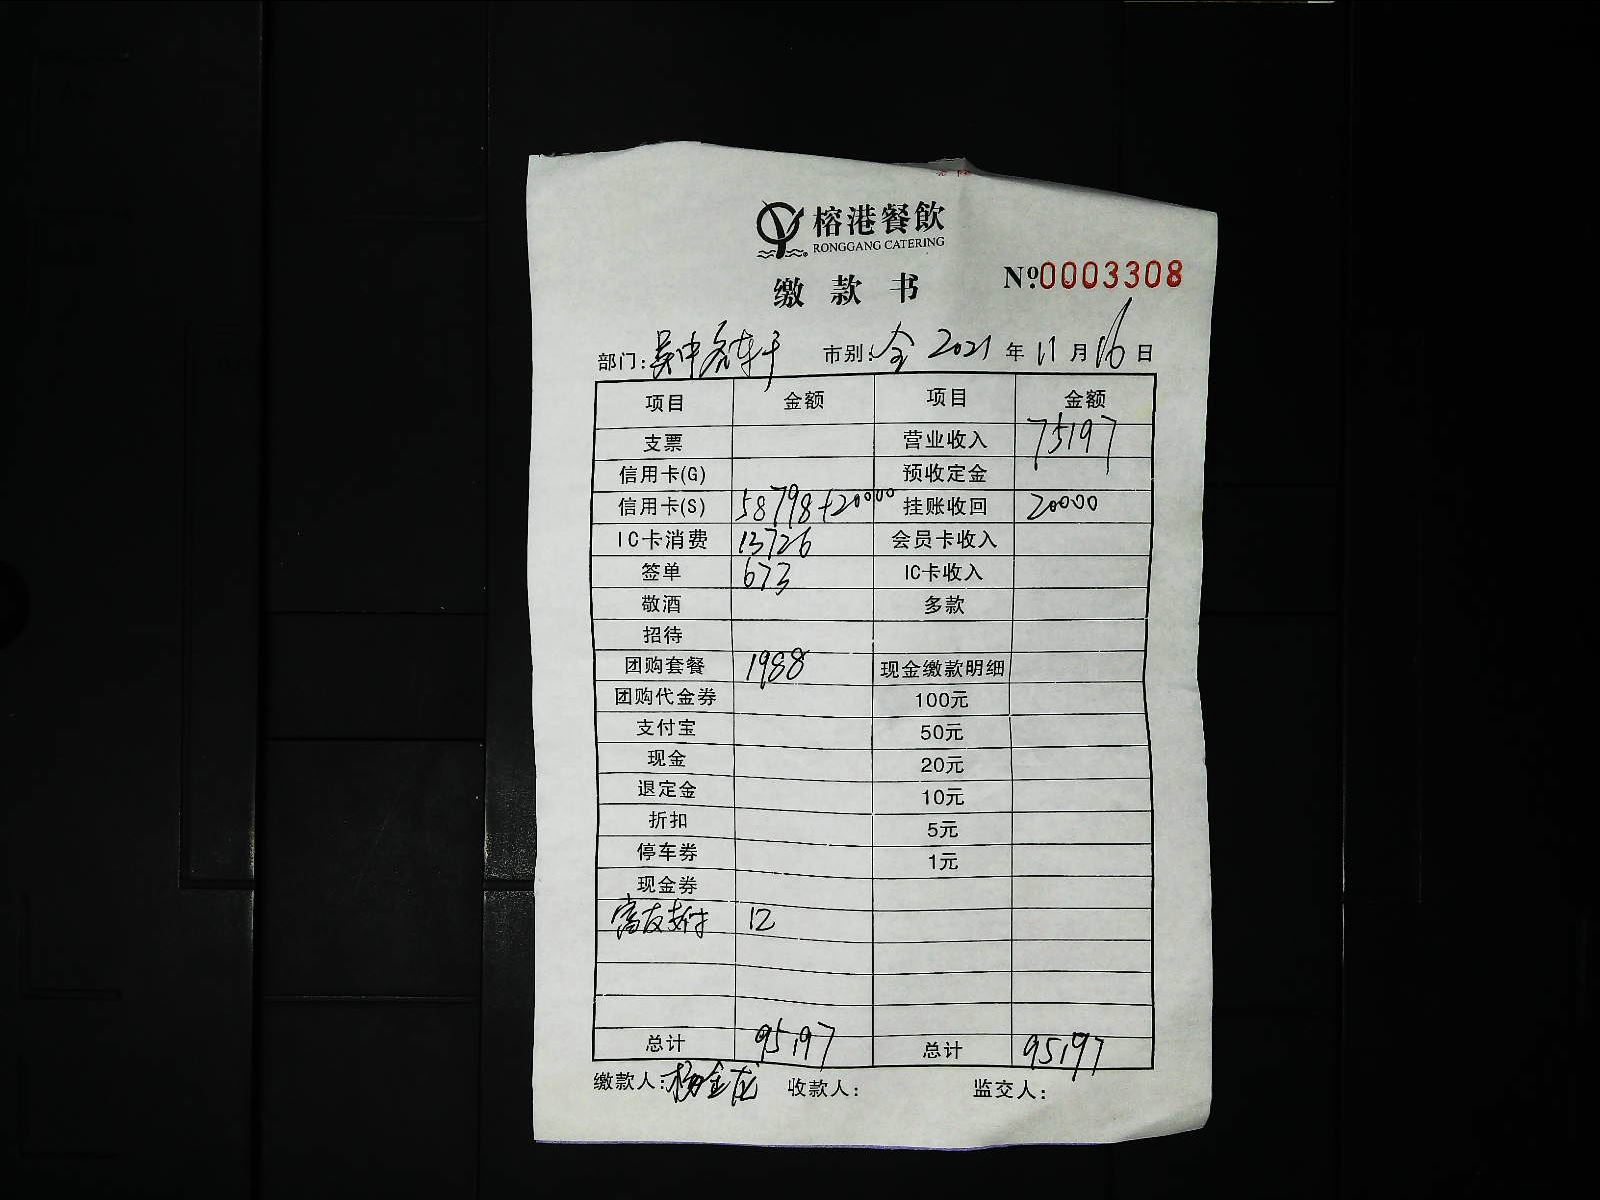 榕港餐飲
RONGGANG CATERING
缴款书
№0003308
部门: 吴中 市别: 全 2021 年 11 月 16 日
项目 金额 项目 金额
支票 营业收入 75197
信用卡(G) 预收定金
信用卡(S) 58798+20000 挂账收回 20000
IC卡消费 13726 会员卡收入
签单 673 IC卡收入
敬酒 多款
招待
团购套餐 1988 现金缴款明细
团购代金券 100元
支付宝 50元
现金 20元
退定金 10元
折扣 5元
停车券 1元
现金券
12
总计 95197 总计 95197
缴款人: 杨金龙 收款人: 监交人: